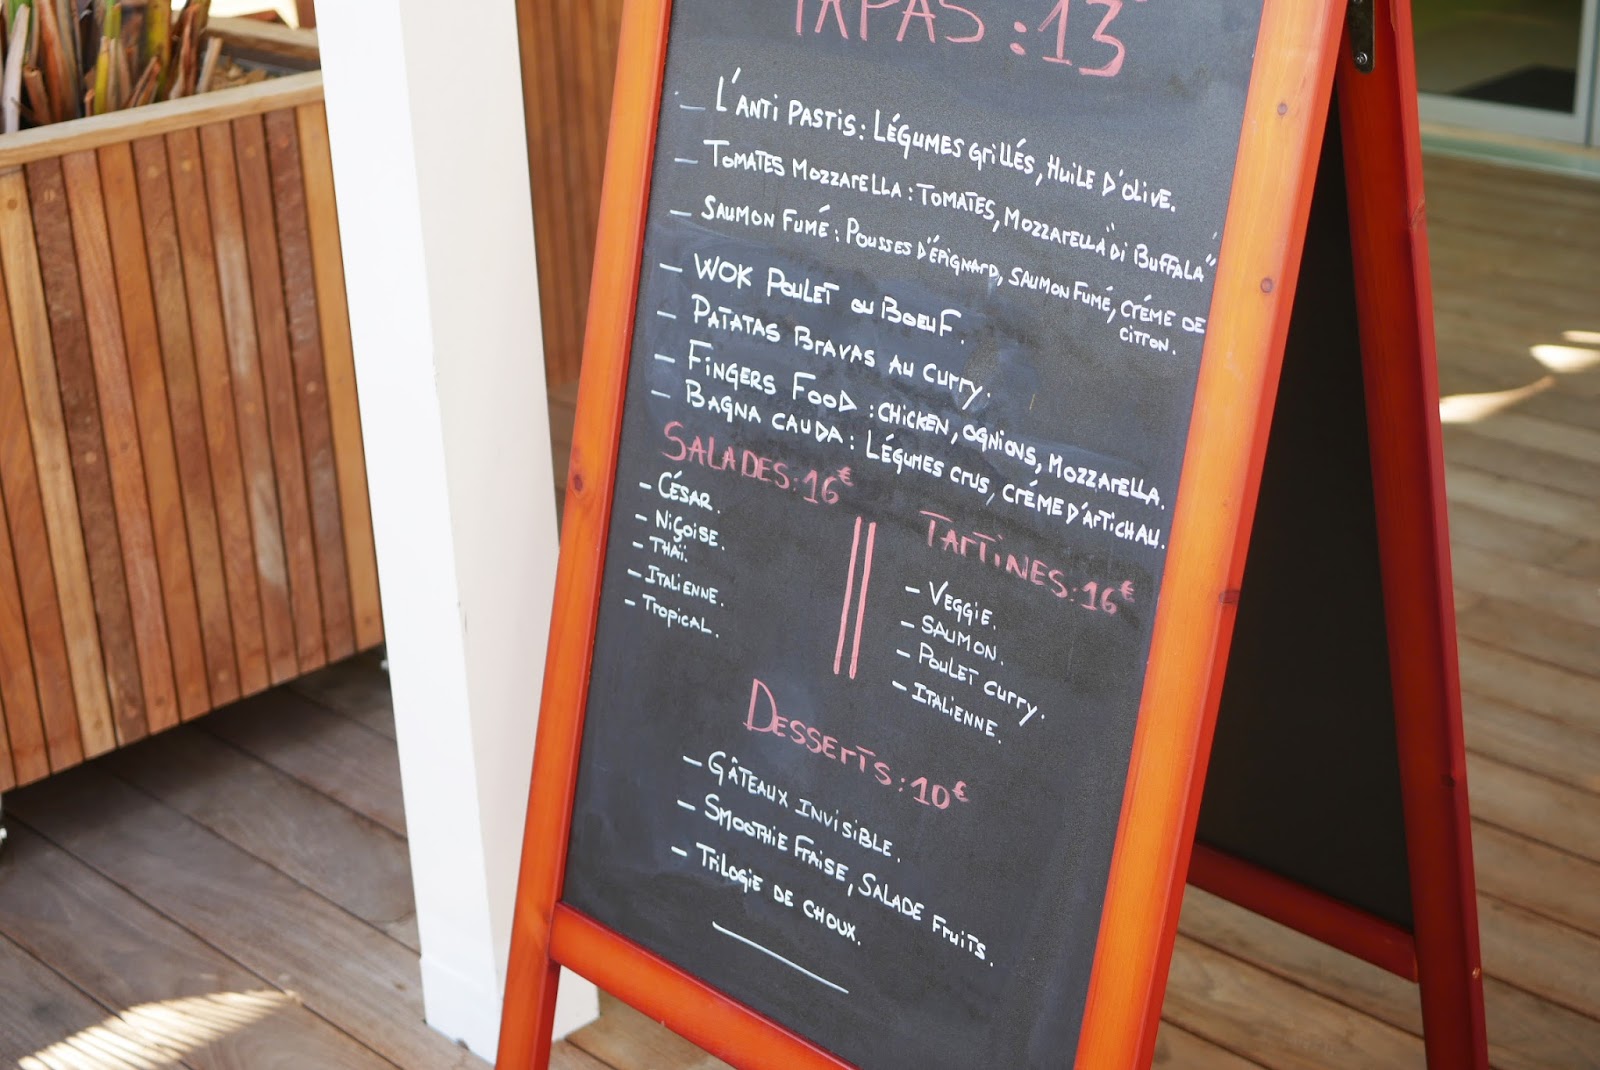 TAPAS : 13
— L'ANTI PASTIS : LÉGUMES GRILLÉS, HUILE D'OLIVE.
— TOMATES MOZZARELLA : TOMATES, MOZZARELLA "DI BUFFALA"
— SAUMON FUMÉ : POUSSES D'ÉPIGNARD, SAUMON FUMÉ, CRÉME DE
CITRON.
— WOK POULET OU BOEUF.
— PATATAS BRAVAS AU CURRY.
— FINGERS FOOD : CHICKEN, OGNIONS, MOZZARELLA.
— BAGNA CAUDA : LÉGUMES CRUS, CRÉME D'ARTICHAU.
SALADES : 16€
- CÉSAR.
- NIÇOISE.
- THAÏ.
- ITALIENNE.
- TROPICAL.
TARTINES : 16€
- VEGGIE.
- SAUMON.
- POULET CURRY.
- ITALIENNE.
DESSERTS : 10€
- GÂTEAUX INVISIBLE.
- SMOOTHIE FRAISE, SALADE FRUITS.
- TRILOGIE DE CHOUX.